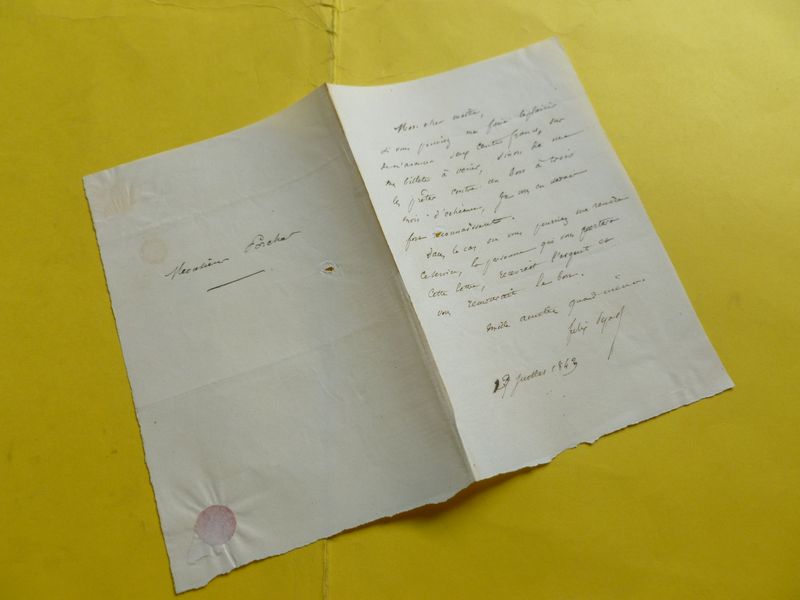 Monsieur Porcher
Mon cher maitre,
si vous pouviez me faire le plaisir
de m'avancer cent francs, sur
mes billets à venir, sinon de me
les prêter contre un bon à trois
mois d'échéance, je vous en serais
fort reconnaissant.
Dans le cas où vous pourriez me rendre
ce service, la personne qui vous portera
cette lettre, recevrait l'argent et
vous remettrait le bon.
mille amitiés quand même.
felix Pyat
27 juillet 1843